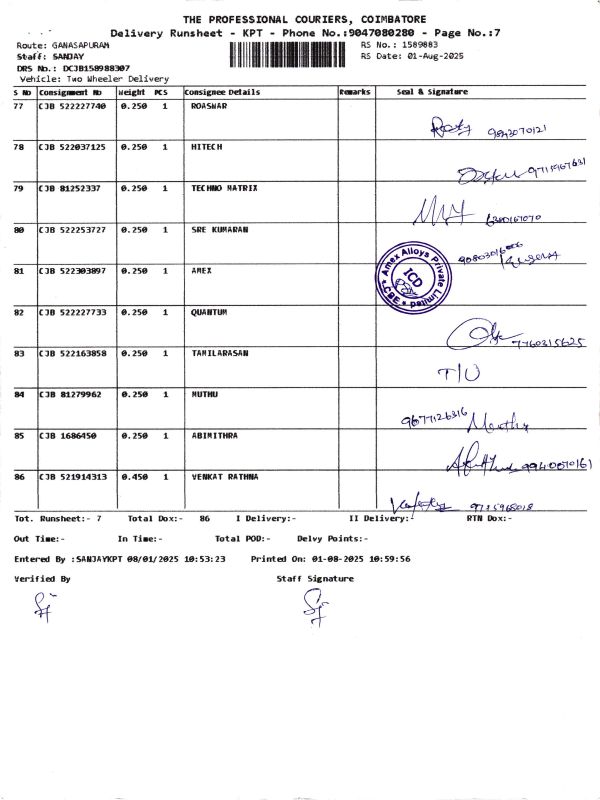 THE PROFESSIONAL COURIERS, COIMBATORE
Delivery Runsheet - KPT - Phone No.:9047080280 - Page No.:7
Route: GANASAPURAM
RS No.: 1589883
Staff: SANJAY
RS Date: 01-Aug-2025
DRS No.: DCJB158988307
Vehicle: Two Wheeler Delivery
S No Consignment No Weight PCS Consignee Details Remarks Seal & Signature
77 CJB 522227740 0.250 1 ROASWAR
9843070121
78 CJB 522037125 0.250 1 HITECH
9715967631
79 CJB 81252337 0.250 1 TECHNO MATRIX
6380167070
80 CJB 522253727 0.250 1 SRE KUMARAN
81 CJB 522303897 0.250 1 AMEX
Amex Alloys Private Limited
ICD
* CBE *
82 CJB 522227733 0.250 1 QUANTUM
7760315625
83 CJB 522163858 0.250 1 TAMILARASAN
T/U
84 CJB 81279962 0.250 1 MUTHU
9677126316 Muthu
85 CJB 1686450 0.250 1 ABIMITHRA
86 CJB 521914313 0.450 1 VENKAT RATHNA
Tot. Runsheet:- 7 Total Dox:- 86 I Delivery:- II Delivery:- RTN Dox:-
Out Time:- In Time:- Total POD:- Delvy Points:-
Entered By :SANJAYKPT 08/01/2025 10:53:23 Printed On: 01-08-2025 10:59:56
Verified By Staff Signature